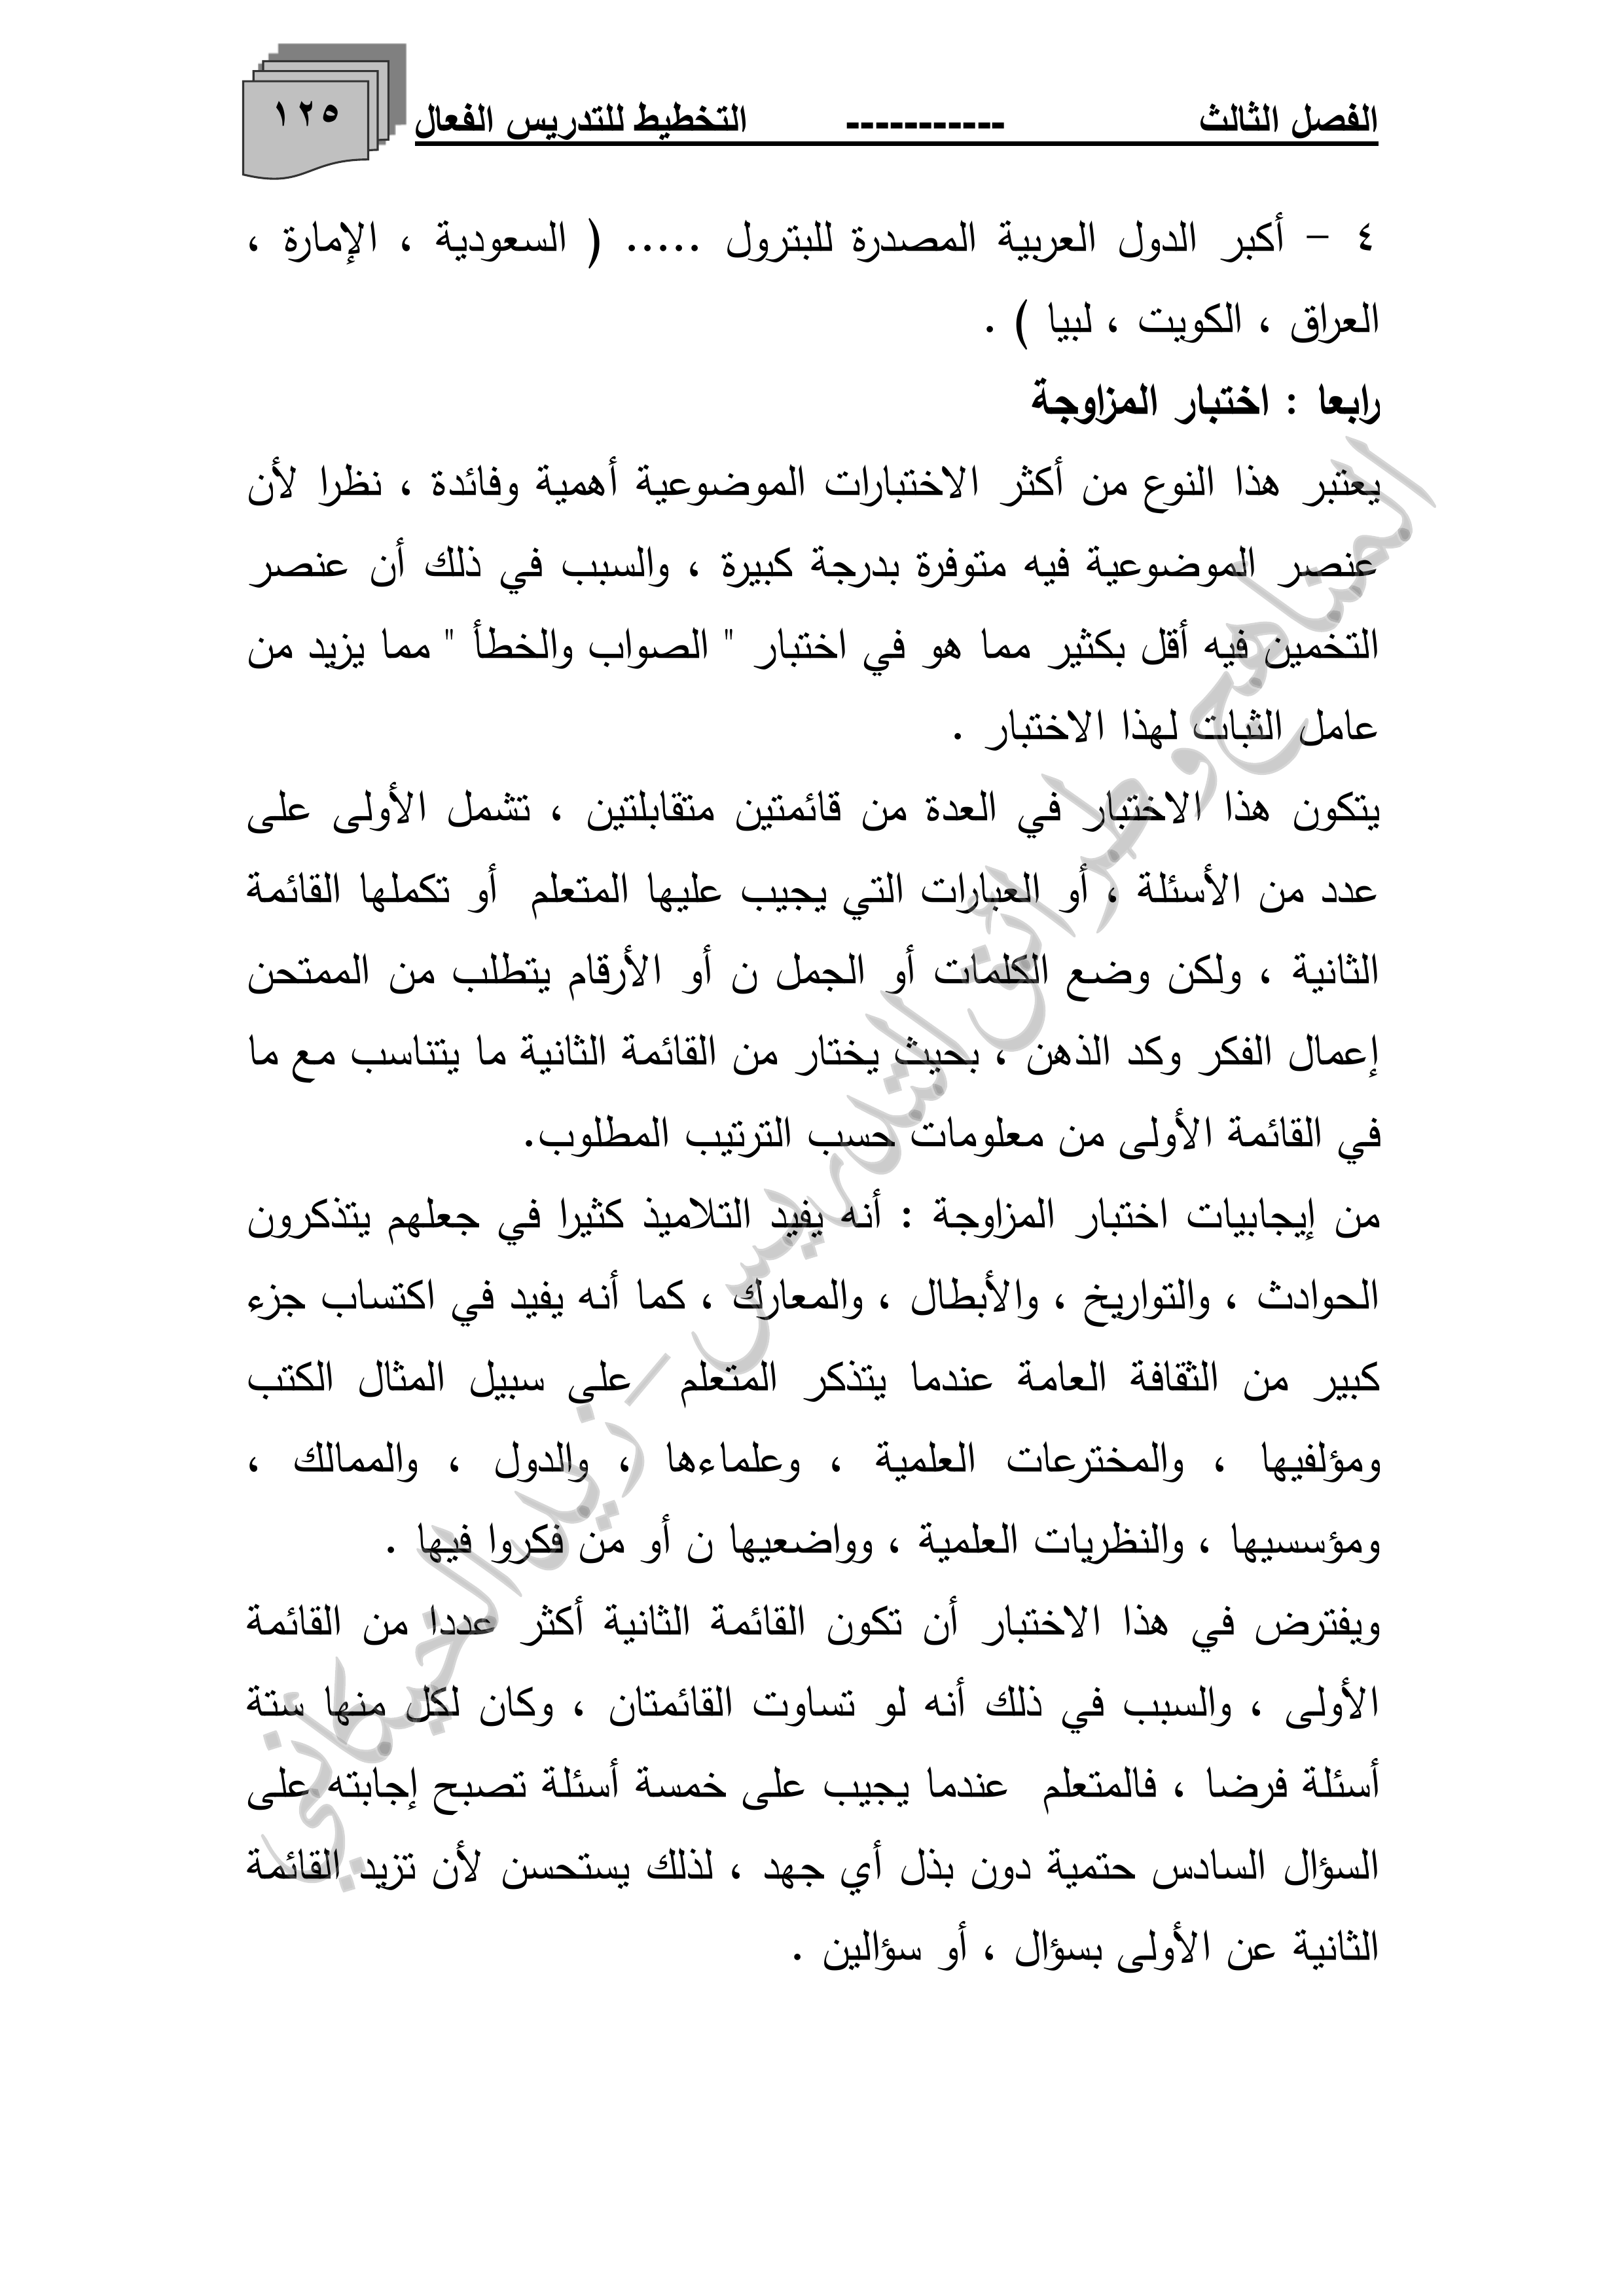 الفصل الثالث ----------- التخطيط للتدريس الفعال ١٢٥
٤ – أكبر الدول العربية المصدرة للبترول ..... ( السعودية ، الإمارة ،
العراق ، الكويت ، لبيا ) .
رابعا : اختبار المزاوجة
يعتبر هذا النوع من أكثر الاختبارات الموضوعية أهمية وفائدة ، نظرا لأن
عنصر الموضوعية فيه متوفرة بدرجة كبيرة ، والسبب في ذلك أن عنصر
التخمين فيه أقل بكثير مما هو في اختبار " الصواب والخطأ " مما يزيد من
عامل الثبات لهذا الاختبار .
يتكون هذا الاختبار في العدة من قائمتين متقابلتين ، تشمل الأولى على
عدد من الأسئلة ، أو العبارات التي يجيب عليها المتعلم أو تكملها القائمة
الثانية ، ولكن وضع الكلمات أو الجمل ن أو الأرقام يتطلب من الممتحن
إعمال الفكر وكد الذهن ، بحيث يختار من القائمة الثانية ما يتناسب مع ما
في القائمة الأولى من معلومات حسب الترتيب المطلوب.
من إيجابيات اختبار المزاوجة : أنه يفيد التلاميذ كثيرا في جعلهم يتذكرون
الحوادث ، والتواريخ ، والأبطال ، والمعارك ، كما أنه يفيد في اكتساب جزء
كبير من الثقافة العامة عندما يتذكر المتعلم على سبيل المثال الكتب
ومؤلفيها ، والمخترعات العلمية ، وعلماءها ، والدول ، والممالك ،
ومؤسسيها ، والنظريات العلمية ، وواضعيها ن أو من فكروا فيها .
ويفترض في هذا الاختبار أن تكون القائمة الثانية أكثر عددا من القائمة
الأولى ، والسبب في ذلك أنه لو تساوت القائمتان ، وكان لكل منها ستة
أسئلة فرضا ، فالمتعلم عندما يجيب على خمسة أسئلة تصبح إجابته على
السؤال السادس حتمية دون بذل أي جهد ، لذلك يستحسن لأن تزيد القائمة
الثانية عن الأولى بسؤال ، أو سؤالين .
المناهج وطرائق التدريس – زيد الخيكاني